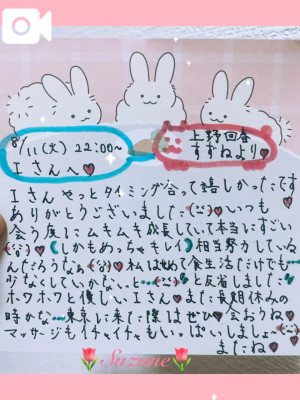 8/11(火) 22:00~
Iさんへ♥
上野回春
すずねより♥
Iさんやっとタイミング合って嬉しかったです
ありがとうございました(˘ω˘)♥いつも
会う度にムキムキ成長していて本当にすごい
しかもめっちゃキレイ 相当努力している
んだろうなぁ 私はせめて食生活だけでも…
少なくしていかな、と… と反省しました
ホワホワと優しいIさん♥また長期休みの
時かな… 東京に来た際はぜひ♥会おうね♥
マッサージもイチャイチャもいっぱいしましょ
またね♥
Suzune